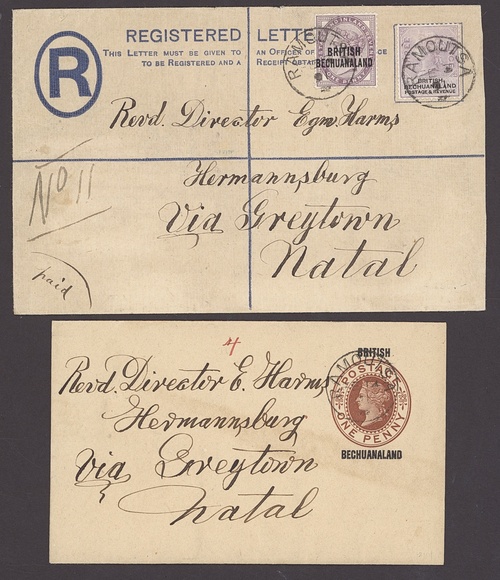 REGISTERED LETTER
THIS LETTER MUST BE GIVEN TO AN OFFICER OF
TO BE REGISTERED AND A RECEIPT
R
BRITISH
BECHUANALAND
RAMOUTSA
BRITISH
BECHUANALAND
POSTAGE & REVENUE
RAMOUTSA
Revd. Director Egm Harms
Hermannsburg
Via Greytown
Natal
No 11
paid
4
Revd. Director E. Harms
Hermannsburg
Via Greytown
Natal
BRITISH
RAMOUTSA
POSTAGE
ONE PENNY
BECHUANALAND